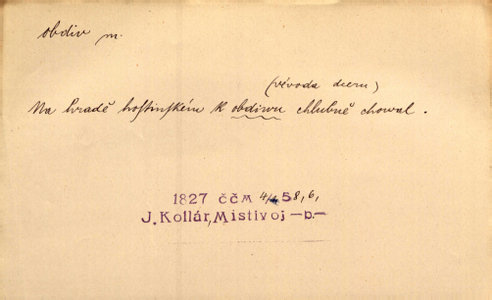 obdiv m.
(vévoda dceru)
Na hradě hoſtinſkém k obdivu chlubně chowal .
1827 ČČM 4/1, 58, 6,
J. Kollár, Mistivoj –b–